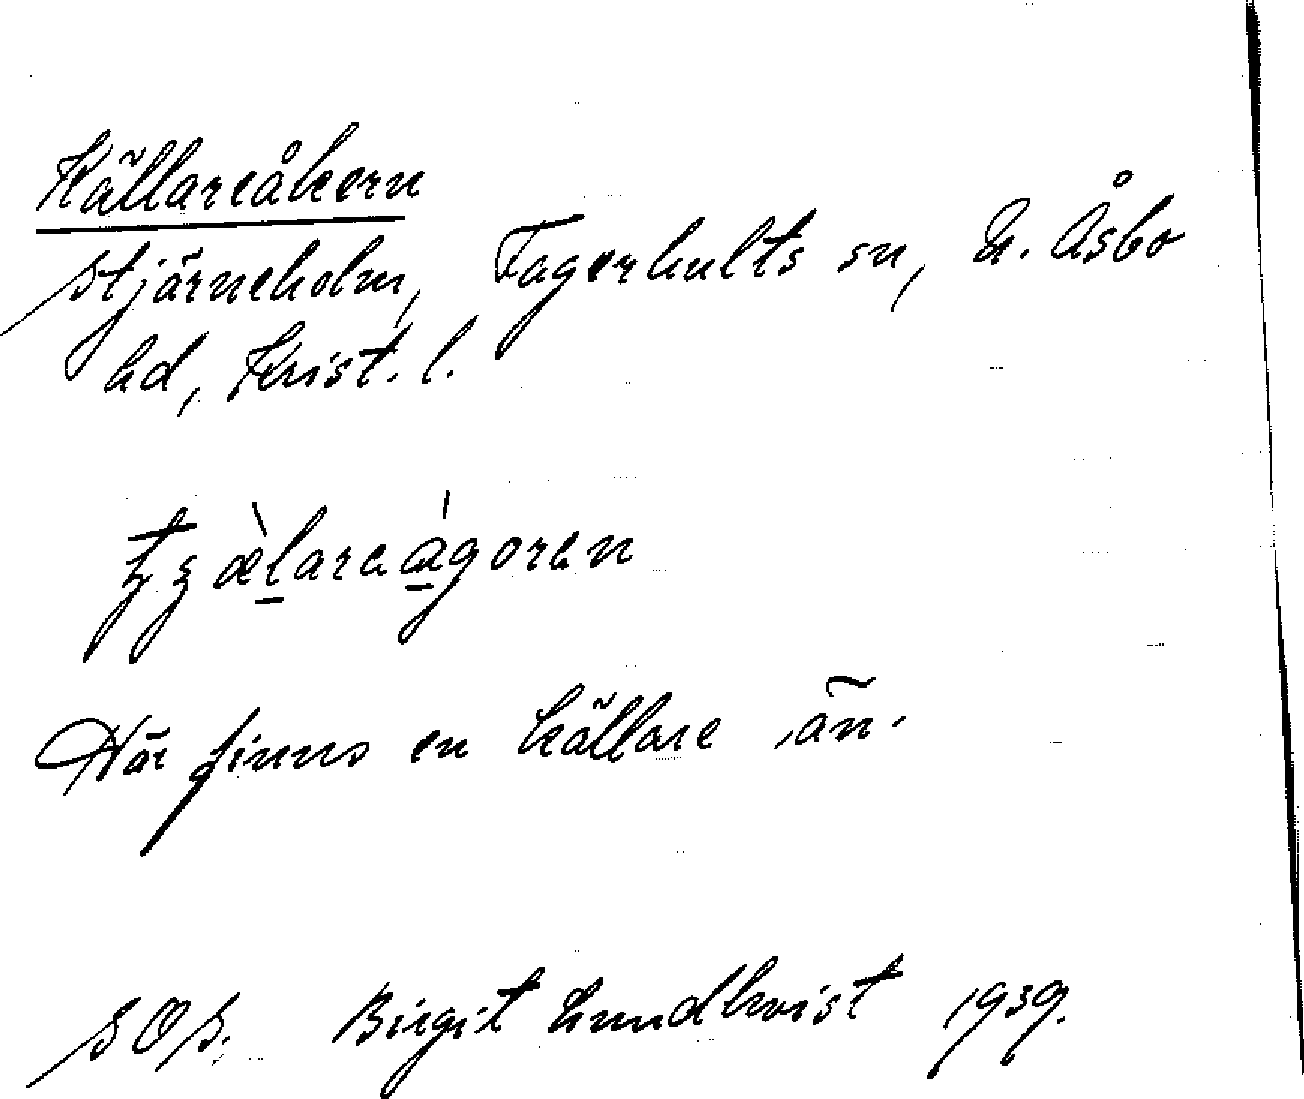 Källareåkern
Stjärneholm, Fagerhults sn, N. Åsbo
hd, Krist. l.
Här finns en källare än.
SOS. Birgit Lundkvist 1939.